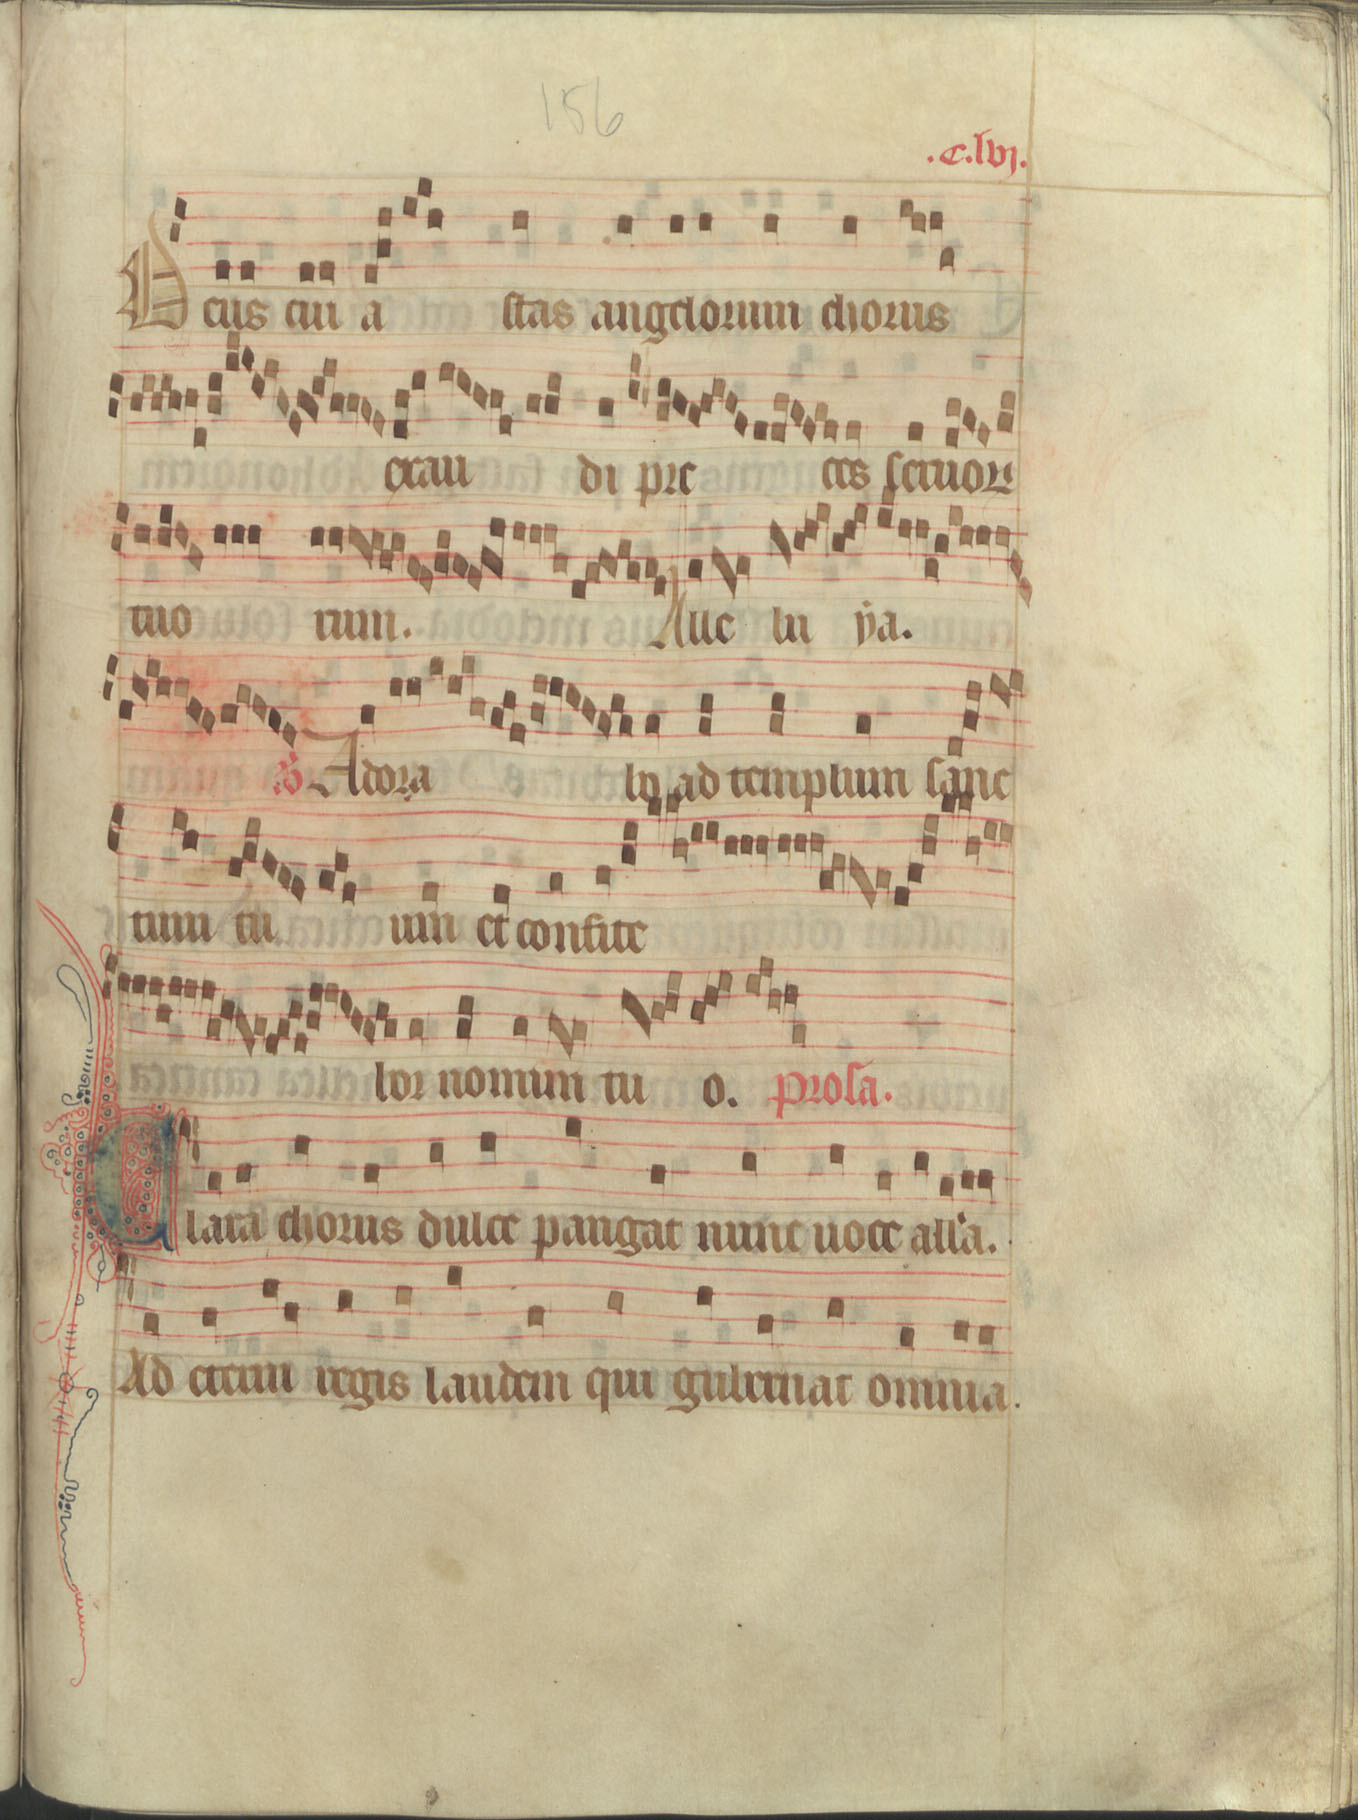 156
.c.lvj.
Deus cui a stas angelorum chorus
exau di pre ces seruoꝝ
tuo rum. Alle lu ẏa.
Adora bo ad templum sanc
tum tu um et confite
bor nomini tu o. Prosa.
Clara chorus dulce pangat nunc uoce all'a.
Ad eterni regis laudem qui gubernat omnia.